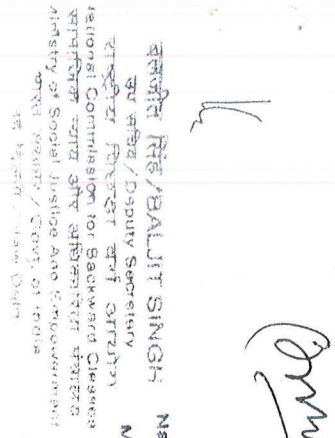 बलजीत सिंह/BALJIT SINGH
उप सचिव/Deputy Secretary
राष्ट्रीय पिछड़ा वर्ग आयोग
National Commission for Backward Classes
सामाजिक न्याय और अधिकारिता मंत्रालय
Ministry of Social Justice And Empowerment
भारत सरकार/Govt. of India
नई दिल्ली/New Delhi